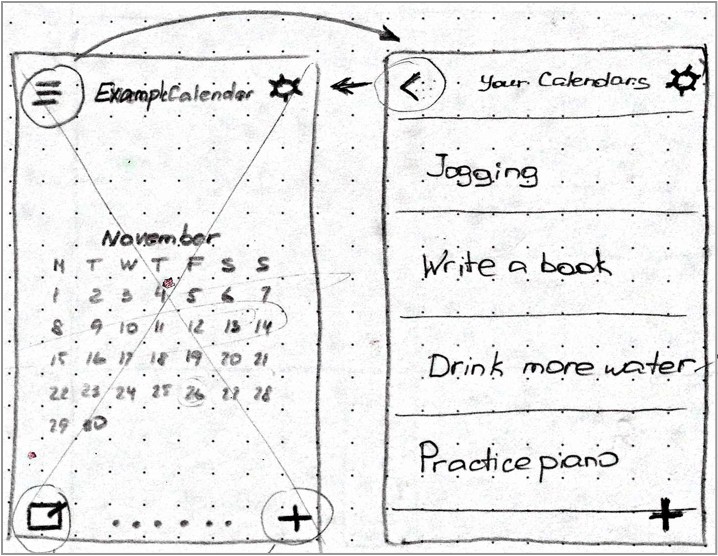 ExampleCalendar
November
M T W T F S S
1 2 3 4 5 6 7
8 9 10 11 12 13 14
15 16 17 18 19 20 21
22 23 24 25 26 27 28
29 30
Your Calendars
Jogging
Write a book
Drink more water
Practice piano